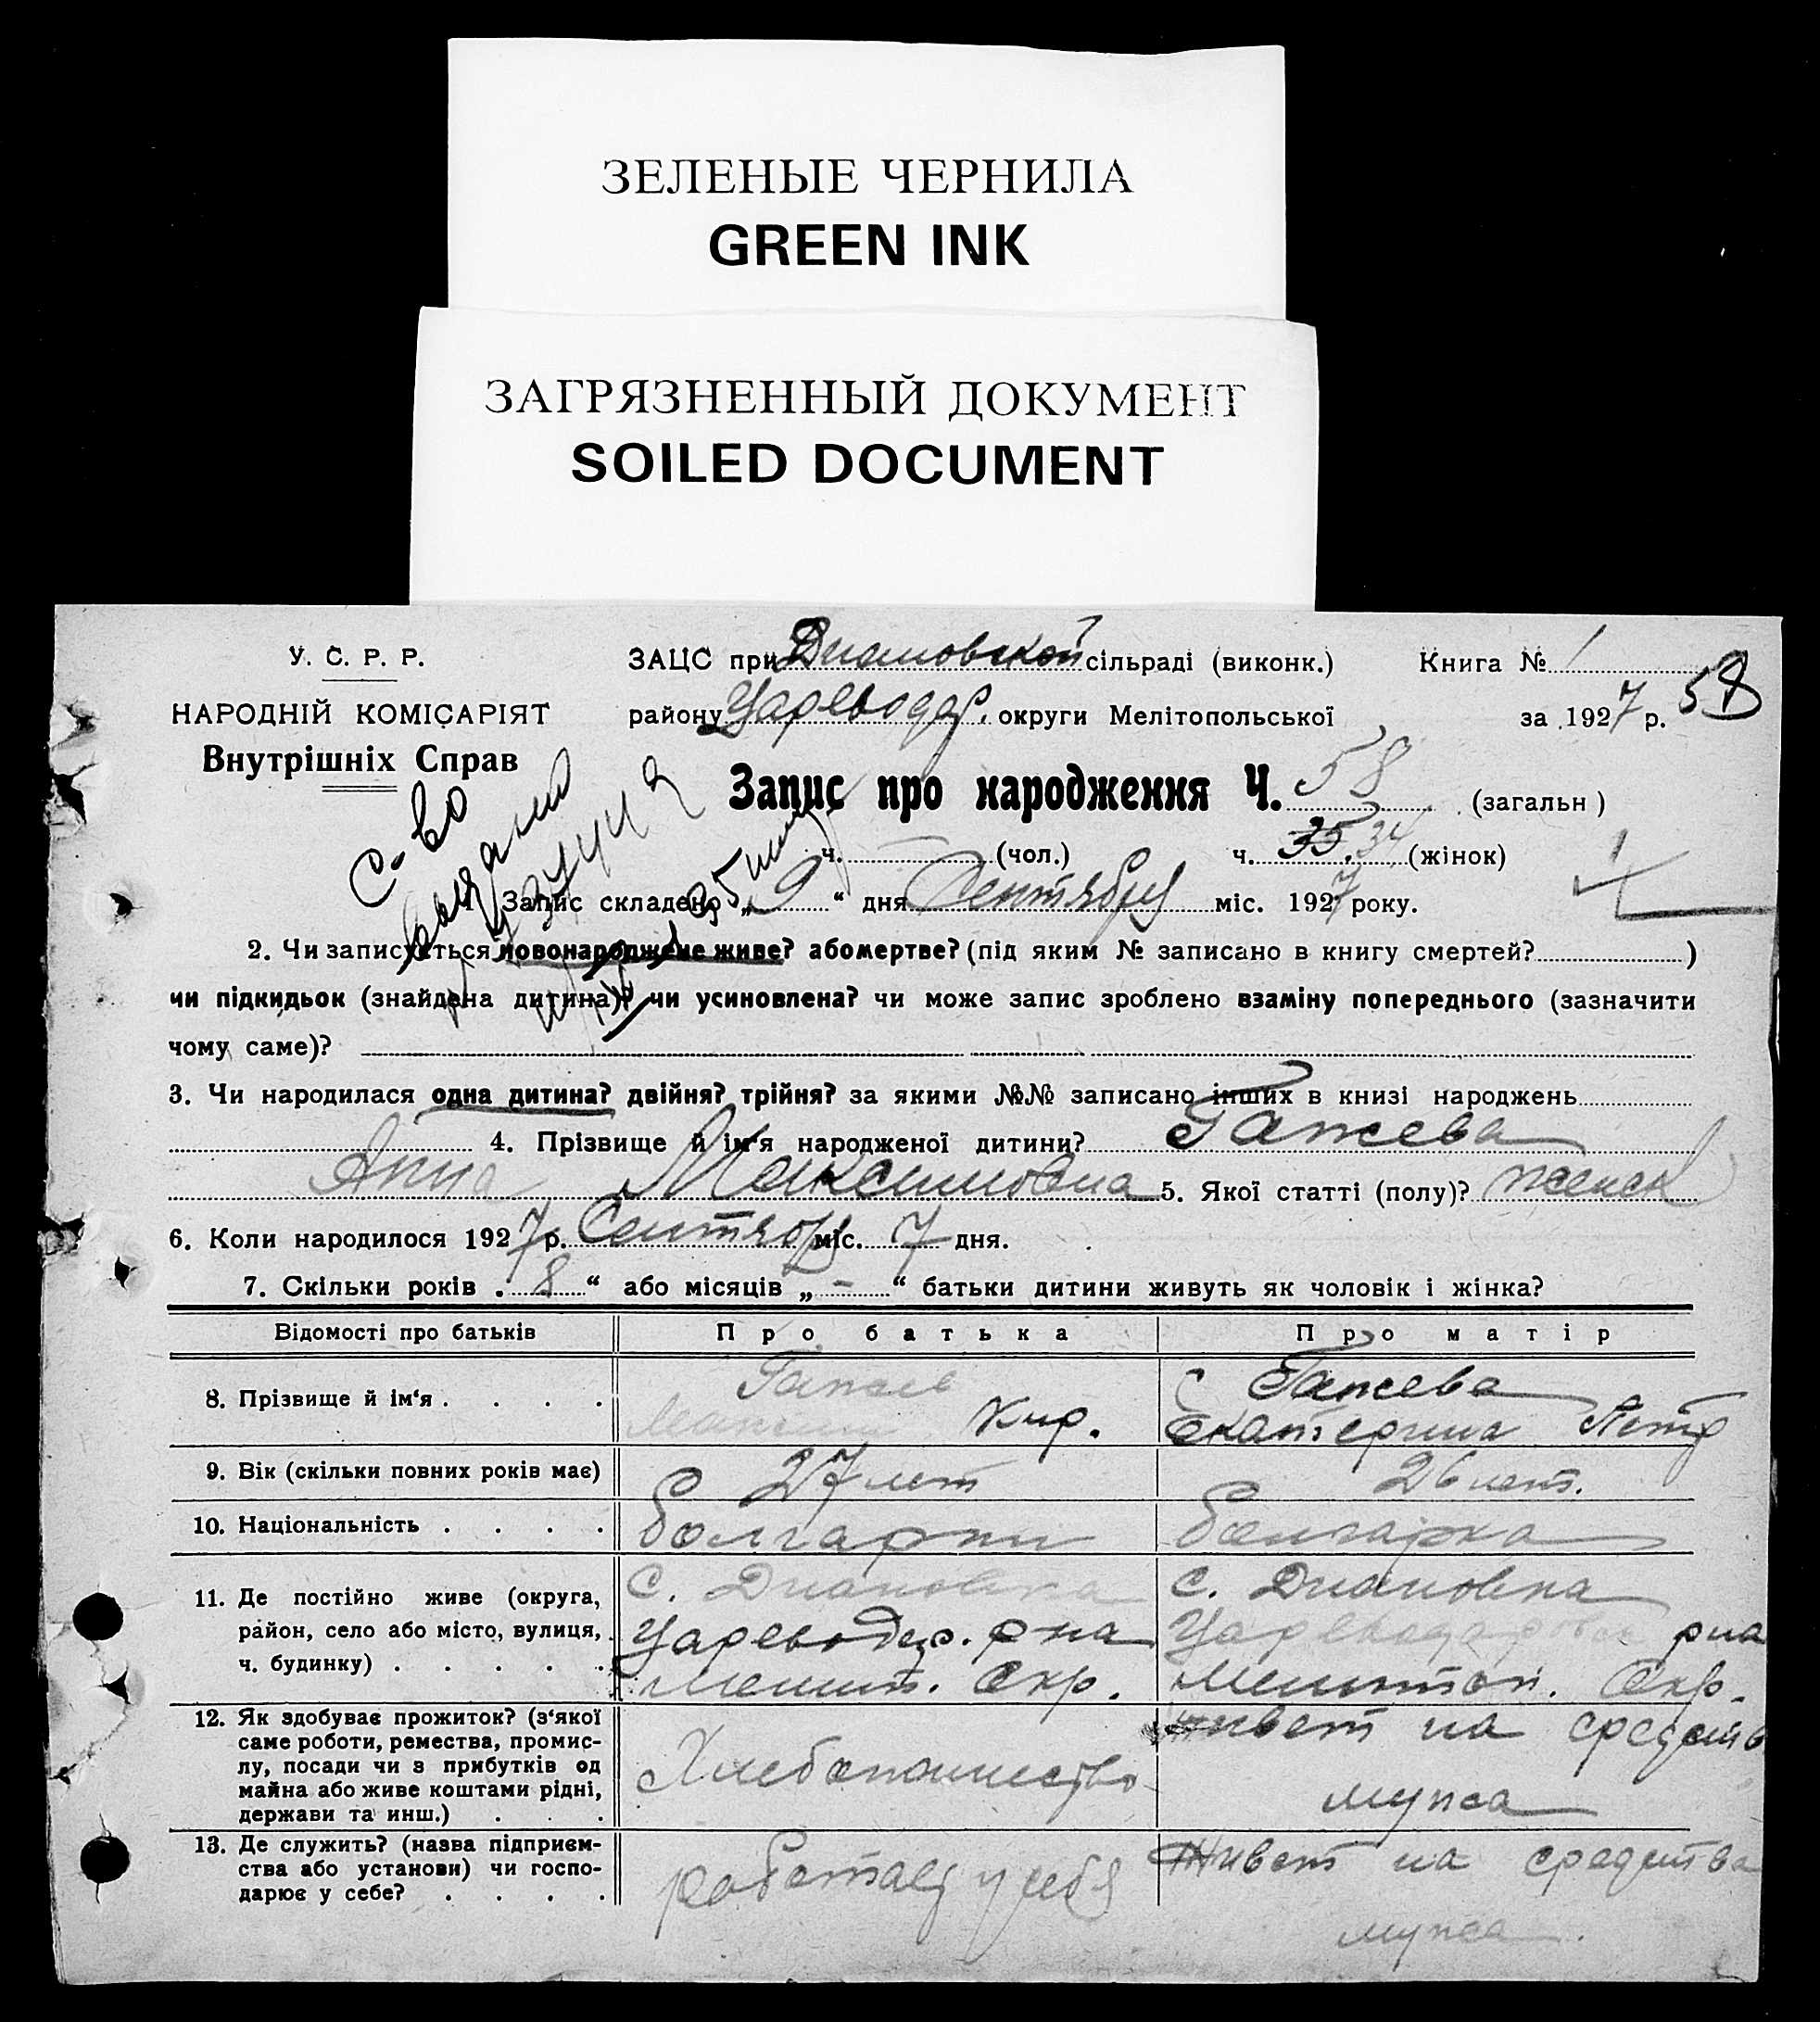 ЗЕЛЕНЫЕ ЧЕРНИЛА
GREEN INK
ЗАГРЯЗНЕННЫЙ ДОКУМЕНТ
SOILED DOCUMENT
У. С. Р. Р.
НАРОДНІЙ КОМІСАРІЯТ
Внутрішніх Справ
ЗАЦС при Диановской сільраді (виконк.) Книга № 1
району Цареводар. округи Мелітопольської за 1927 р. 58
Запис про народження Ч. 58 (загальн)
ч. (чол.) ч. 35. 34 (жінок)
С-во
1. Запис складено „9“ дня Сентября міс. 1927 року.
2. Чи записується новонароджене живе? або мертве? (під яким № записано в книгу смертей? )
чи підкидьок (знайдена дитина)? чи усиновлена? чи може запис зроблено взаміну попереднього (зазначити
чому саме)?
3. Чи народилася одна дитина? двійня? трійня? за якими №№ записано інших в книзі народжень
4. Прізвище й ім‘я народженої дитини? Гажева
Анна Максимовна 5. Якої статті (полу)? женск
6. Коли народилося 1927 р. Сентябр міс. 7 дня.
7. Скільки років „8“ або місяців „-“ батьки дитини живуть як чоловік і жінка?
Відомості про батьків Про батька Про матір
8. Прізвище й ім‘я . . . . Гажев Гажева
Максим Кир. Екатерина Петр
9. Вік (скільки повних років має) 27 лет 26 лет.
10. Національність . . . . болгарин болгарка
11. Де постійно живе (округа, с. Диановка с. Диановка
район, село або місто, вулиця, Цареводар. рна Цареводаров рна
ч. будинку) . . . . . Мелит. Окр. Мелитоп. Окр.
12. Як здобуває прожиток? (з‘якої живет на средств
саме роботи, ремества, промис-
лу, посади чи з прибутків од Хлебопашество
майна або живе коштами рідні, мужа
держави та инш.) . . .
13. Де служить? (назва підприєм- Живет на средства
ства або установи) чи госпо- работает у себя
дарює у себе? . . . . мужа.